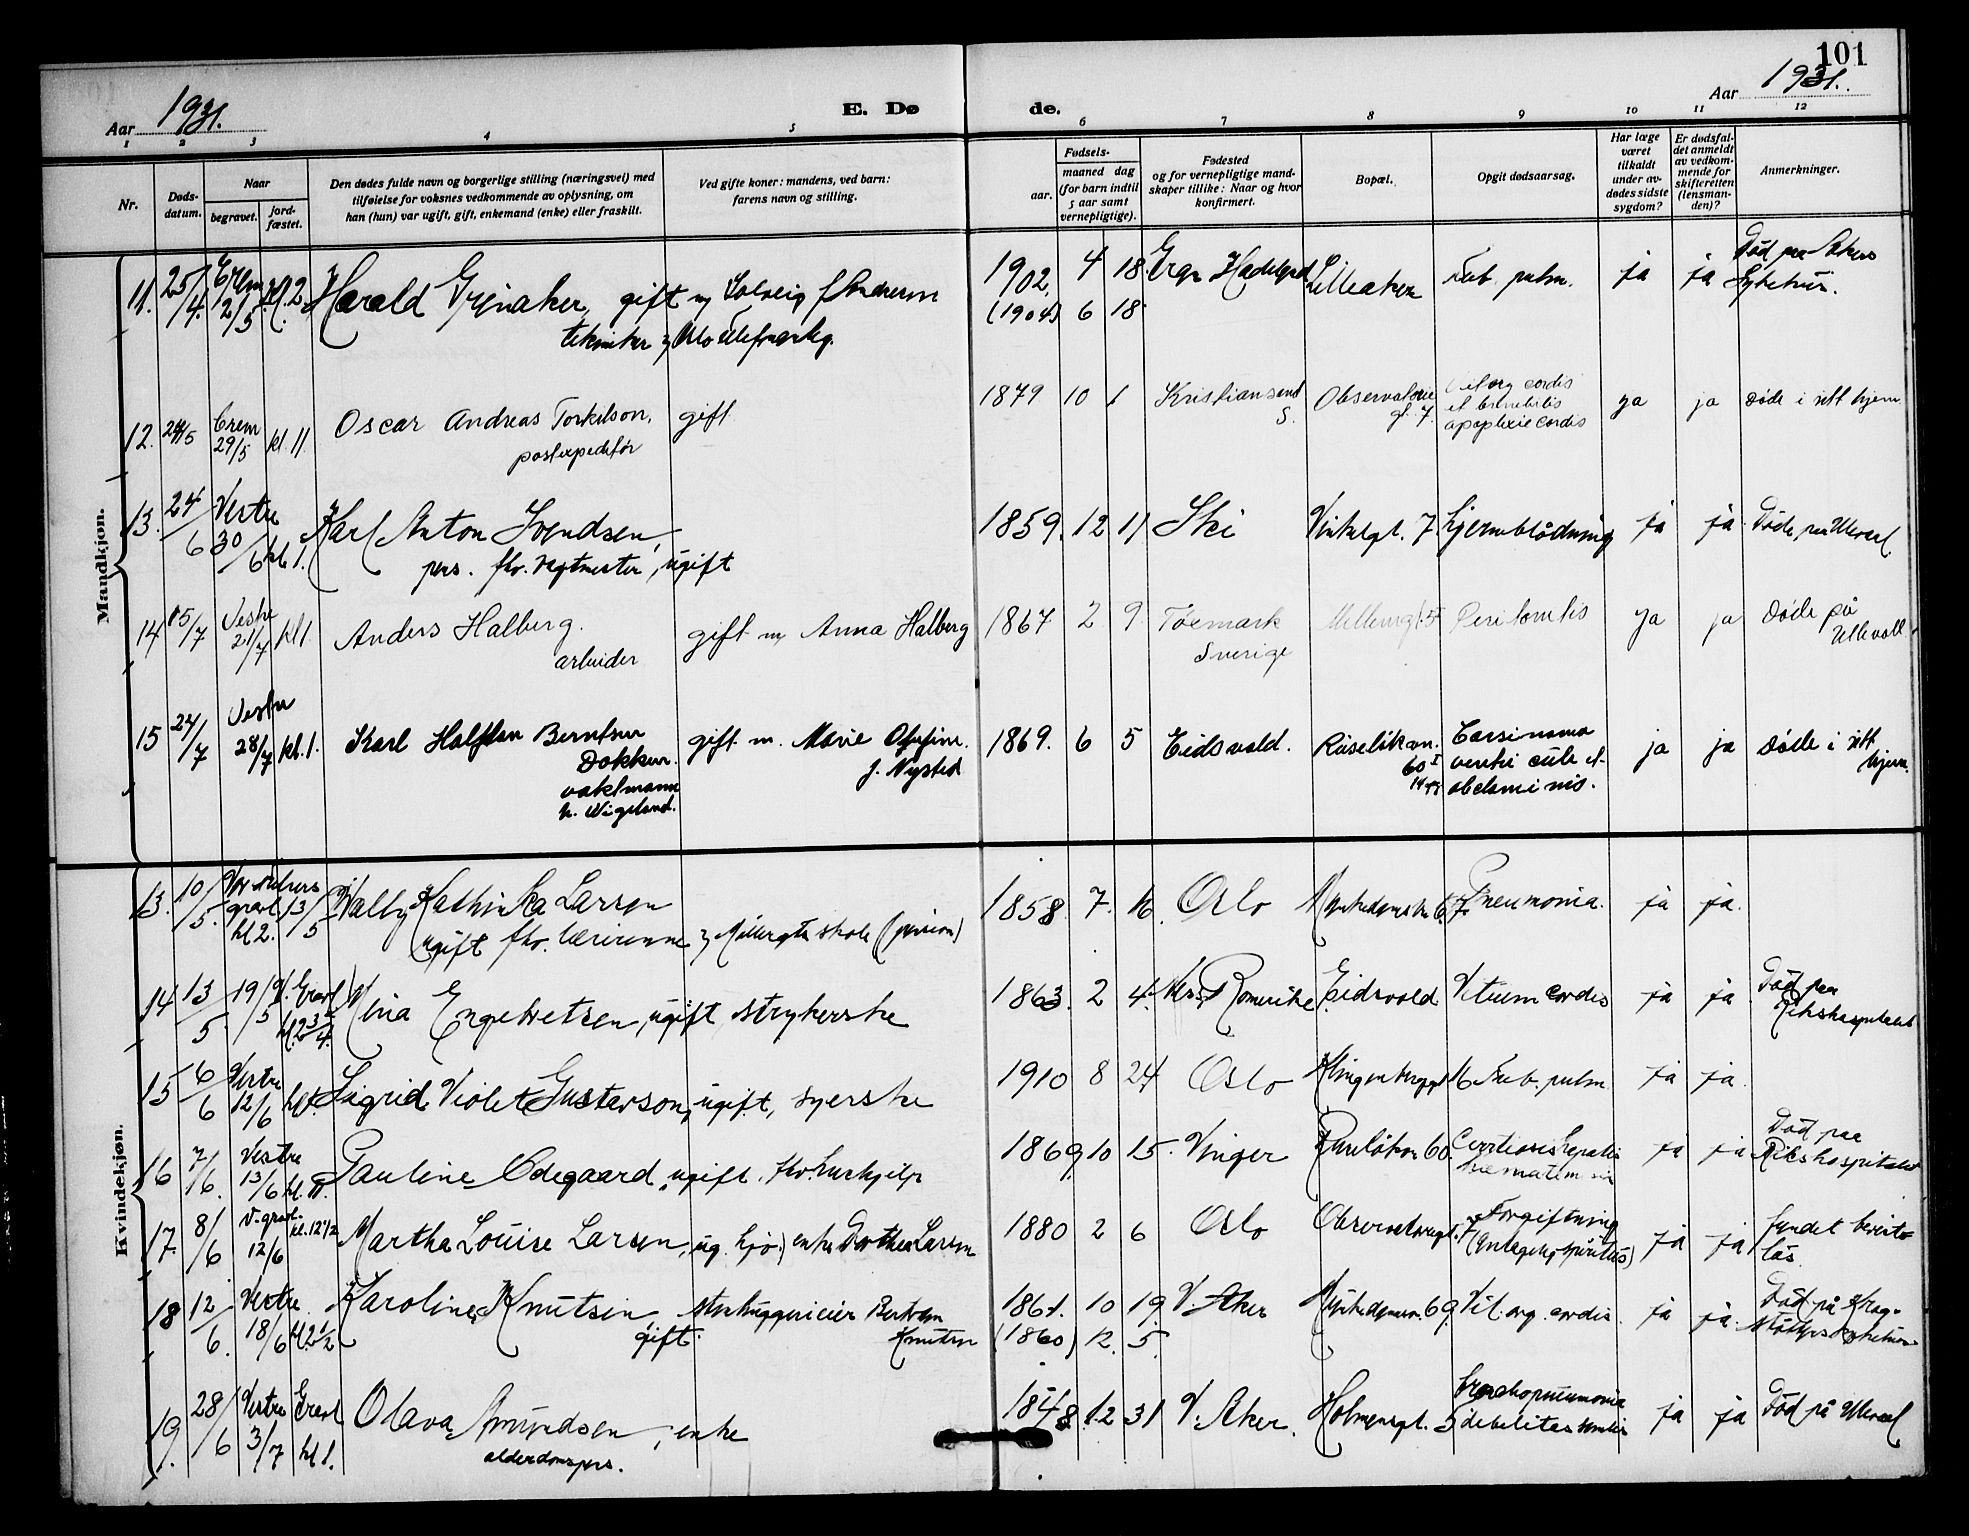 101
Aar 1931.
E. Dø de.
Aar 1931.
1 2 3 4 5 6 7 8 9 10 11 12
Nr.
Døds-
datum.
Naar
begravet.
jord-
fæstet.
Den dødes fulde navn og borgerlige stilling (næringsvei) med
tilføielse for voksnes vedkommende av oplysning, om
han (hun) var ugift, gift, enkemand (enke) eller fraskilt.
Ved gifte koner: mandens, ved barn:
farens navn og stilling.
Fødsels-
aar.
maaned dag
(for barn indtil
5 aar samt
vernepligtige).
Fødested
og for vernepligtige mand-
skaper tillike: Naar og hvor
konfirmert.
Bopæl.
Opgit dødsaarsag.
Har læge
været
tilkaldt
under av-
dødes sidste
sygdom?
Er dødsfal-
det anmeldt
av vedkom-
mende for
skifteretten
(lensman-
den)?
Anmerkninger.
Mandkjøn.
11. 25/4. Crem 2/5 kl. 2 Harald Grinaker, gift m Solveig f Andersen 1902. 4 18 Gran Hadeland Lilleaker Tub. pulm. ja ja Död paa Akers
tekniker Oslo (1904) 6 18 Sykehus.
12. 24/5 Crem 29/5 kl 11. Oscar Andreas Torkilson, gift 1879 10 1 Kristiansand S. Observatorie gt. 7. cordis ja ja døde i sitt hjem
postexpeditør apoplexie cordis
13. 24/6 Vestre 30/6 kl 1. Karl Anton Svendsen, 1859. 12 11 Ski 7. hjerneblödning ja ja Døde paa Ulevaal
pens. fhv. vagtmester, ugift
14 15/7 Vestre 21/7 kl 1. Anders Halberg. gift m Anna Halberg 1867 2 9 Töcmark 5 Peritonitis ja ja Døde på
arbeider Sverige Ullevoll
15 24/7 Vestre 28/7 kl. 1. Karl Halfdan Berntsen gift m. Marie 1869. 6 5 Eidsvold. Ruseløkvn. 60 I Carsinoma ja ja Døde i sitt
Dokken. f. Nysted hjem.
vaktmann
h. Wigeland.
Kvindekjøn.
13. 10/5. Vor Frelsers gravl. kl 2. 13/5 Walby Kathinka Larsen 1858. 7. 16. Oslo 67. Pneumonia. ja ja.
ugift fhv. lærerinne Möllergt skole (pension)
14 13/5 19/5 V. Gravl kl. 2 3/4. Nina Engebretsen, ugift strykerske 1863. 2 4. Romerike Eidsvold Vitium cordis ja ja Död paa
Rikshospitalet
15 6/6 Vestre 12/6 kl 1. Sigrid Violet Gustavson, ugift, syerske 1910 8 24 Oslo Klingenberggt 16 Tub. pulm. ja ja.
16 7/6. Vestre 13/6 kl. 11. Pauline Ödegaard, ugift. fhv. hushjelp 1869. 10 15. Vinger Ruseløkvn 60. hepatis ja ja Död paa
Rikshospitalet
17. 8/6 V. gravl. 12/6 kl. 12 1/2 Martha Louise Larsen, ug. hjv.) enke Dorthea Larsen 1880 2 6 Oslo Observatoregt. 7 Forgiftning ja ja fundet bevist-
lös.
18 12/6. Vestre 18/6 kl 2 1/2 Karoline Knutsen, Bertram 1861. 10 19. V. Aker 69. Vit. org. cordis. ja ja. Död på Krog-
gift. Knutsen (1860) 12. 5. støttens sykehus
19. 28/6 Vestre 3/7 Gravl kl 1. Olava Amundsen, enke 1848. 12 31 V. Aker. Holmensgt. 5 bronchopneumonia ja ja Död på Ullevaal
alderdomspens. debilitas senilis